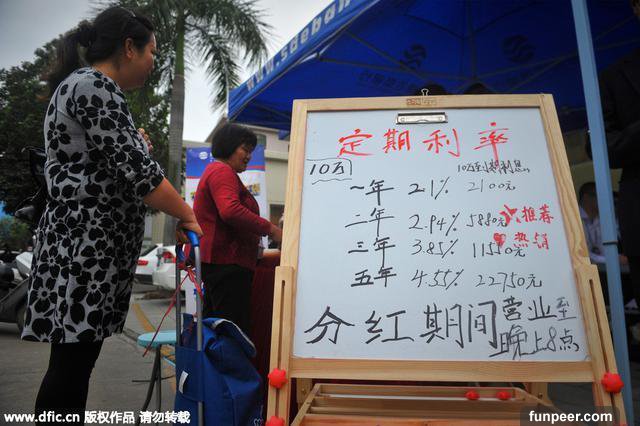 www.sdeban
定期利率
10万
10万到期利息
一年 2.1% 2100元
二年 2.94% 5880元 推荐
三年 3.85% 11550元 热销
五年 4.55% 22750元
分红期间营业至
晚上8点
www.dfic.cn 版权作品 请勿转载
funpeer.com